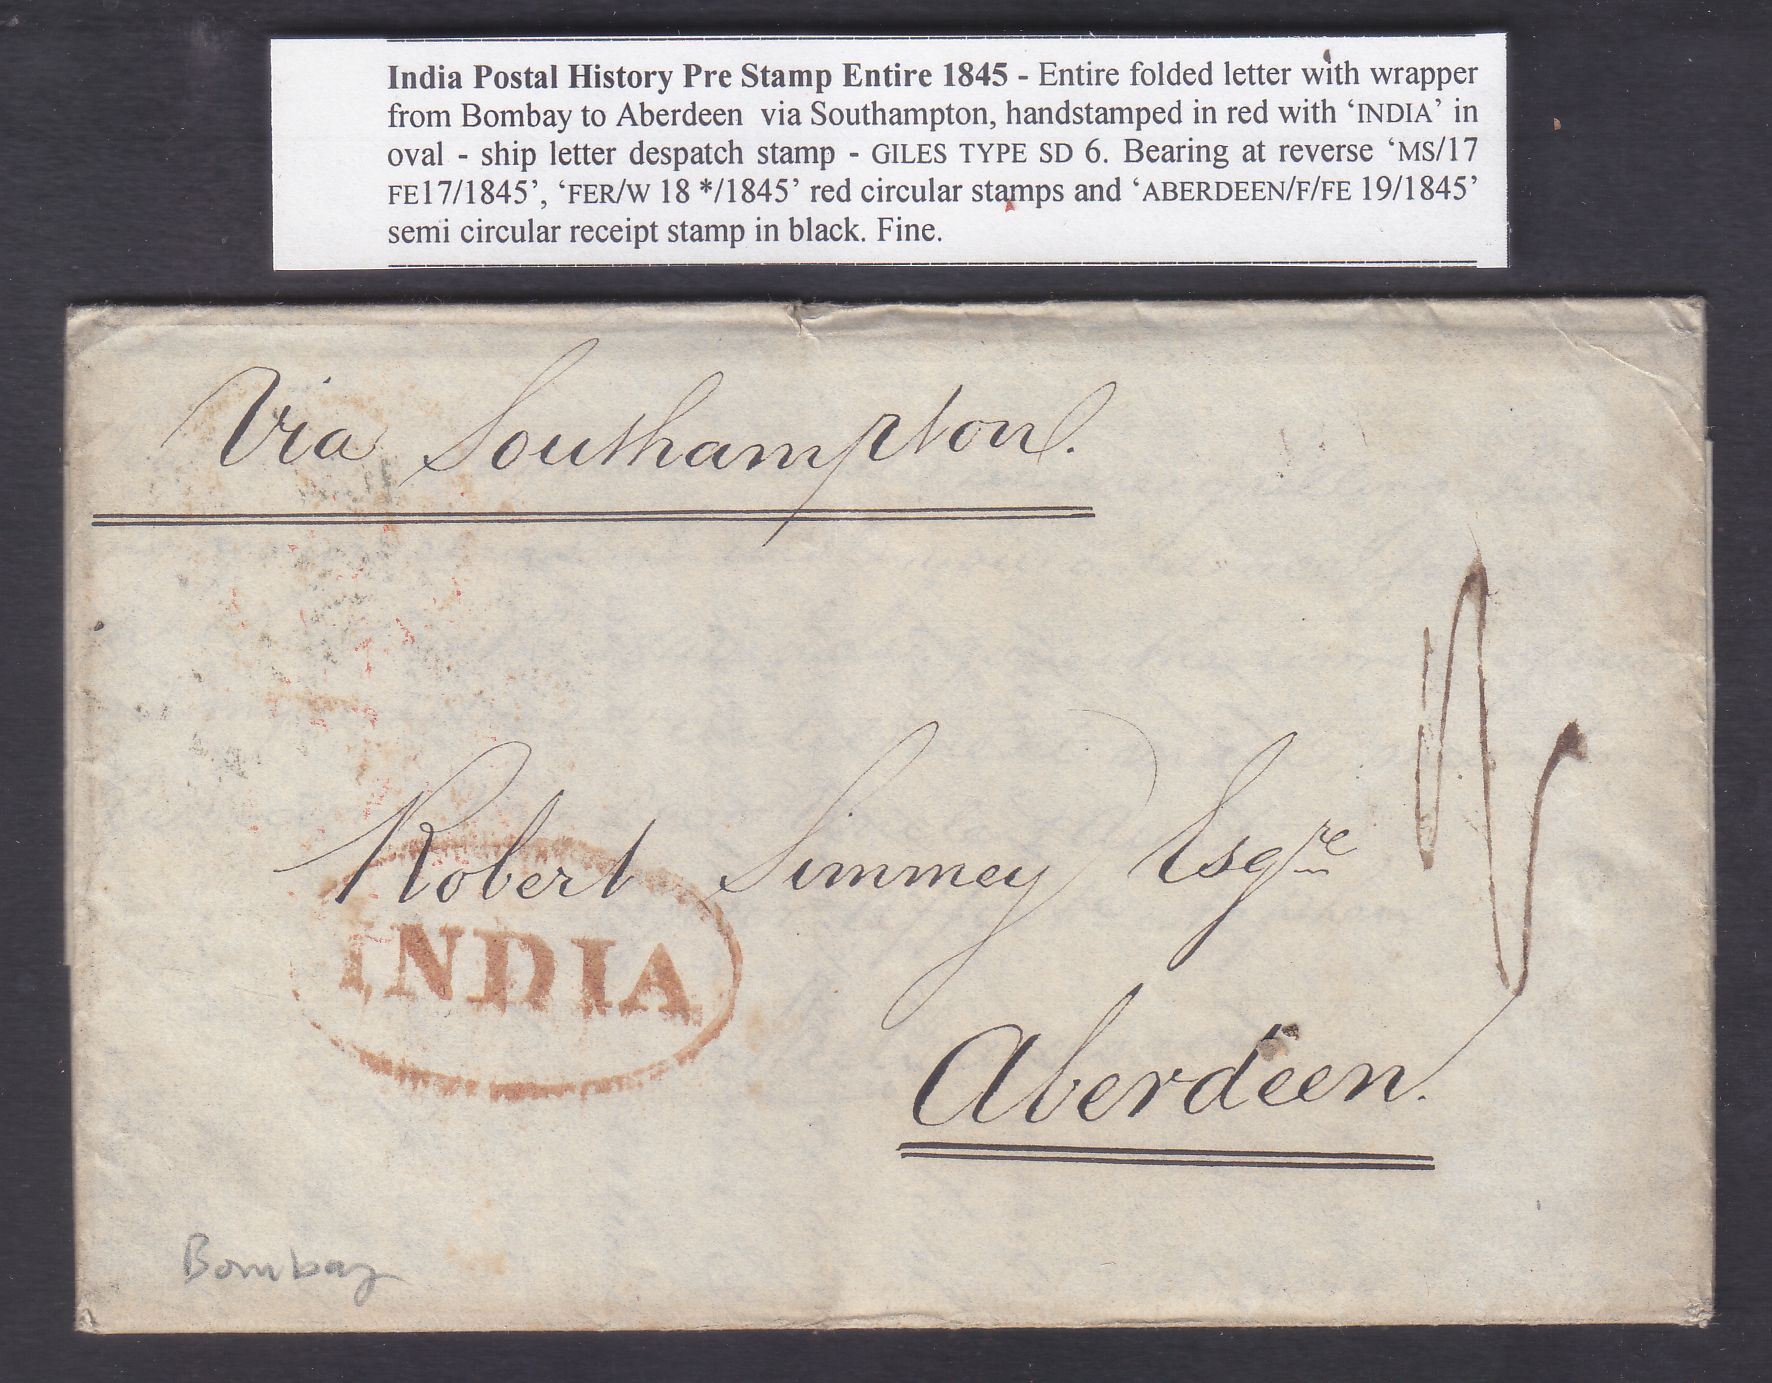 India Postal History Pre Stamp Entire 1845 - Entire folded letter with wrapper
from Bombay to Aberdeen via Southampton, handstamped in red with ‘INDIA’ in
oval - ship letter despatch stamp - GILES TYPE SD 6. Bearing at reverse ‘MS/17
FE17/1845’, ‘FER/W 18 */1845’ red circular stamps and ‘ABERDEEN/F/FE 19/1845’
semi circular receipt stamp in black. Fine.
Via Southampton.
Robert Simmey Esqre
INDIA
Aberdeen.
Bombay